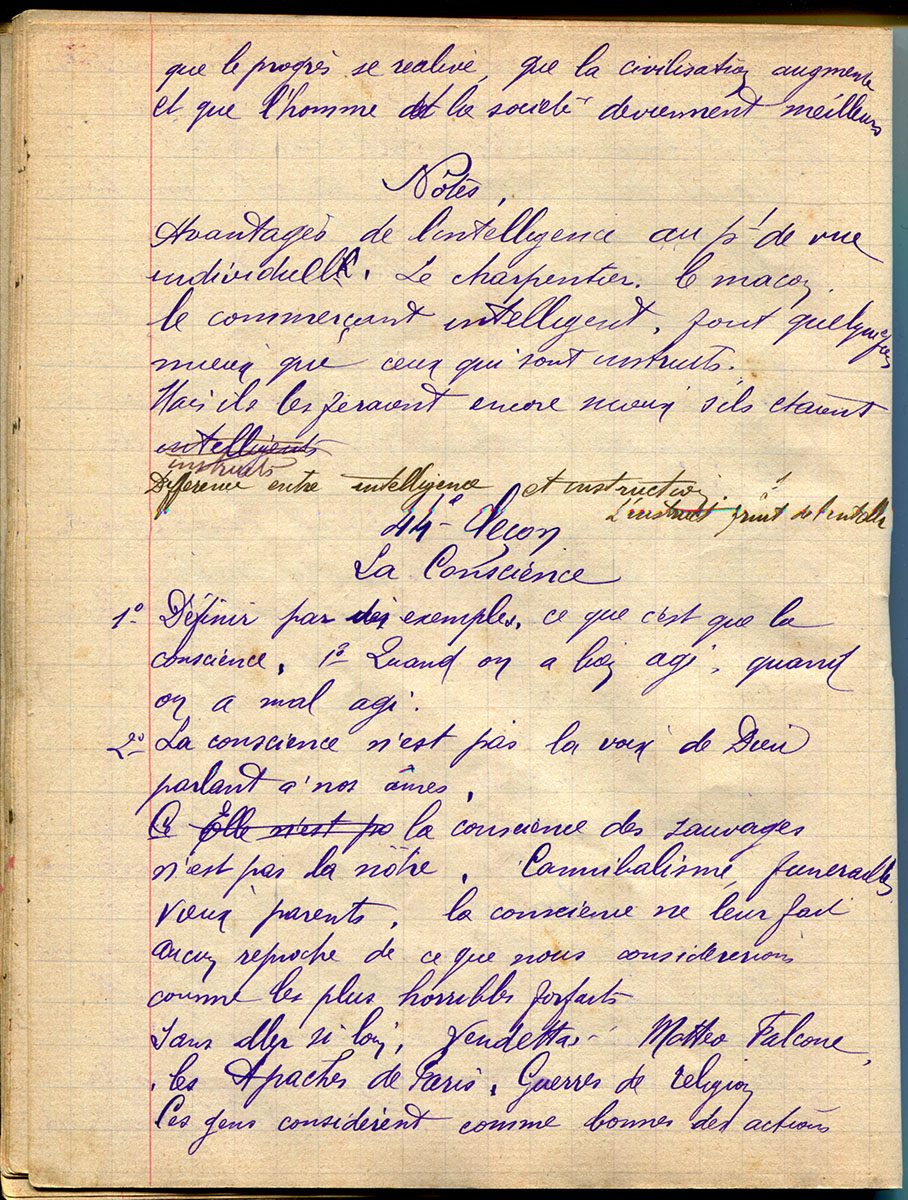 que le progrès se realise, que la civilisation augmente
et que l'homme et la société deviennent meilleurs
Notes,
Avantages de l'intelligence au pt de vue
individuel. Le charpentier. le maçon,
le commerçant intelligent, font quelquefois
mieux que ceux qui sont instruits.
Mais ils les feraient encore mieux s'ils étaient
intelligents
instruits
Différence entre intelligence et instruction
L'instruct fruit de l'intell
44e leçon
La Conscience
1o Définir par des exemples, ce que c'est que la
conscience, 1o Quand on a bien agi, quand
on a mal agi.
2o La conscience n'est pas la voix de Dieu
parlant à nos âmes,
Elle n'est pas la conscience des sauvages
n'est pas la nôtre, Cannibalisme, funerailles,
vieux parents, la conscience ne leur fait
aucun reproche de ce que nous considererions
comme les plus horribles forfaits
Sans aller si loin, Vendettas Matteo Falcone,
les Apaches de Paris, Guerres de religion
Ces gens considèrent comme bonnes des actions